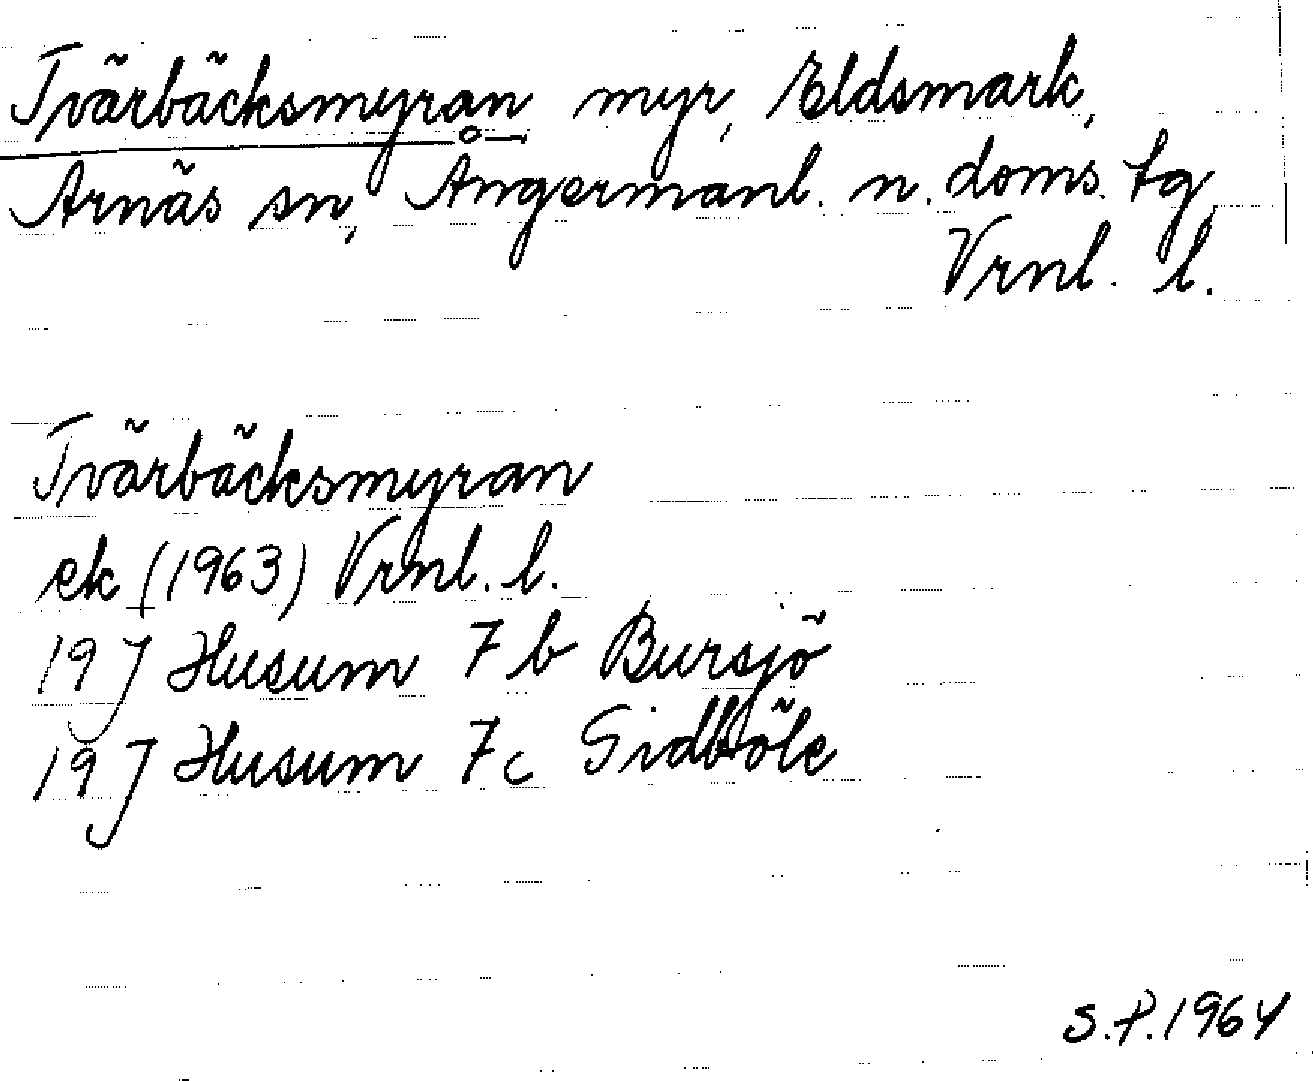 Tvärbäcksmyran myr, Eldsmark,
Arnäs sn, Ångermanl. n. doms. tg
Vrnl. l.
Tvärbäcksmyran
ek (1963) Vrnl. l.
19 J Husum 7 b Bursjö
19 J Husum 7c Gidböle
S.P. 1964